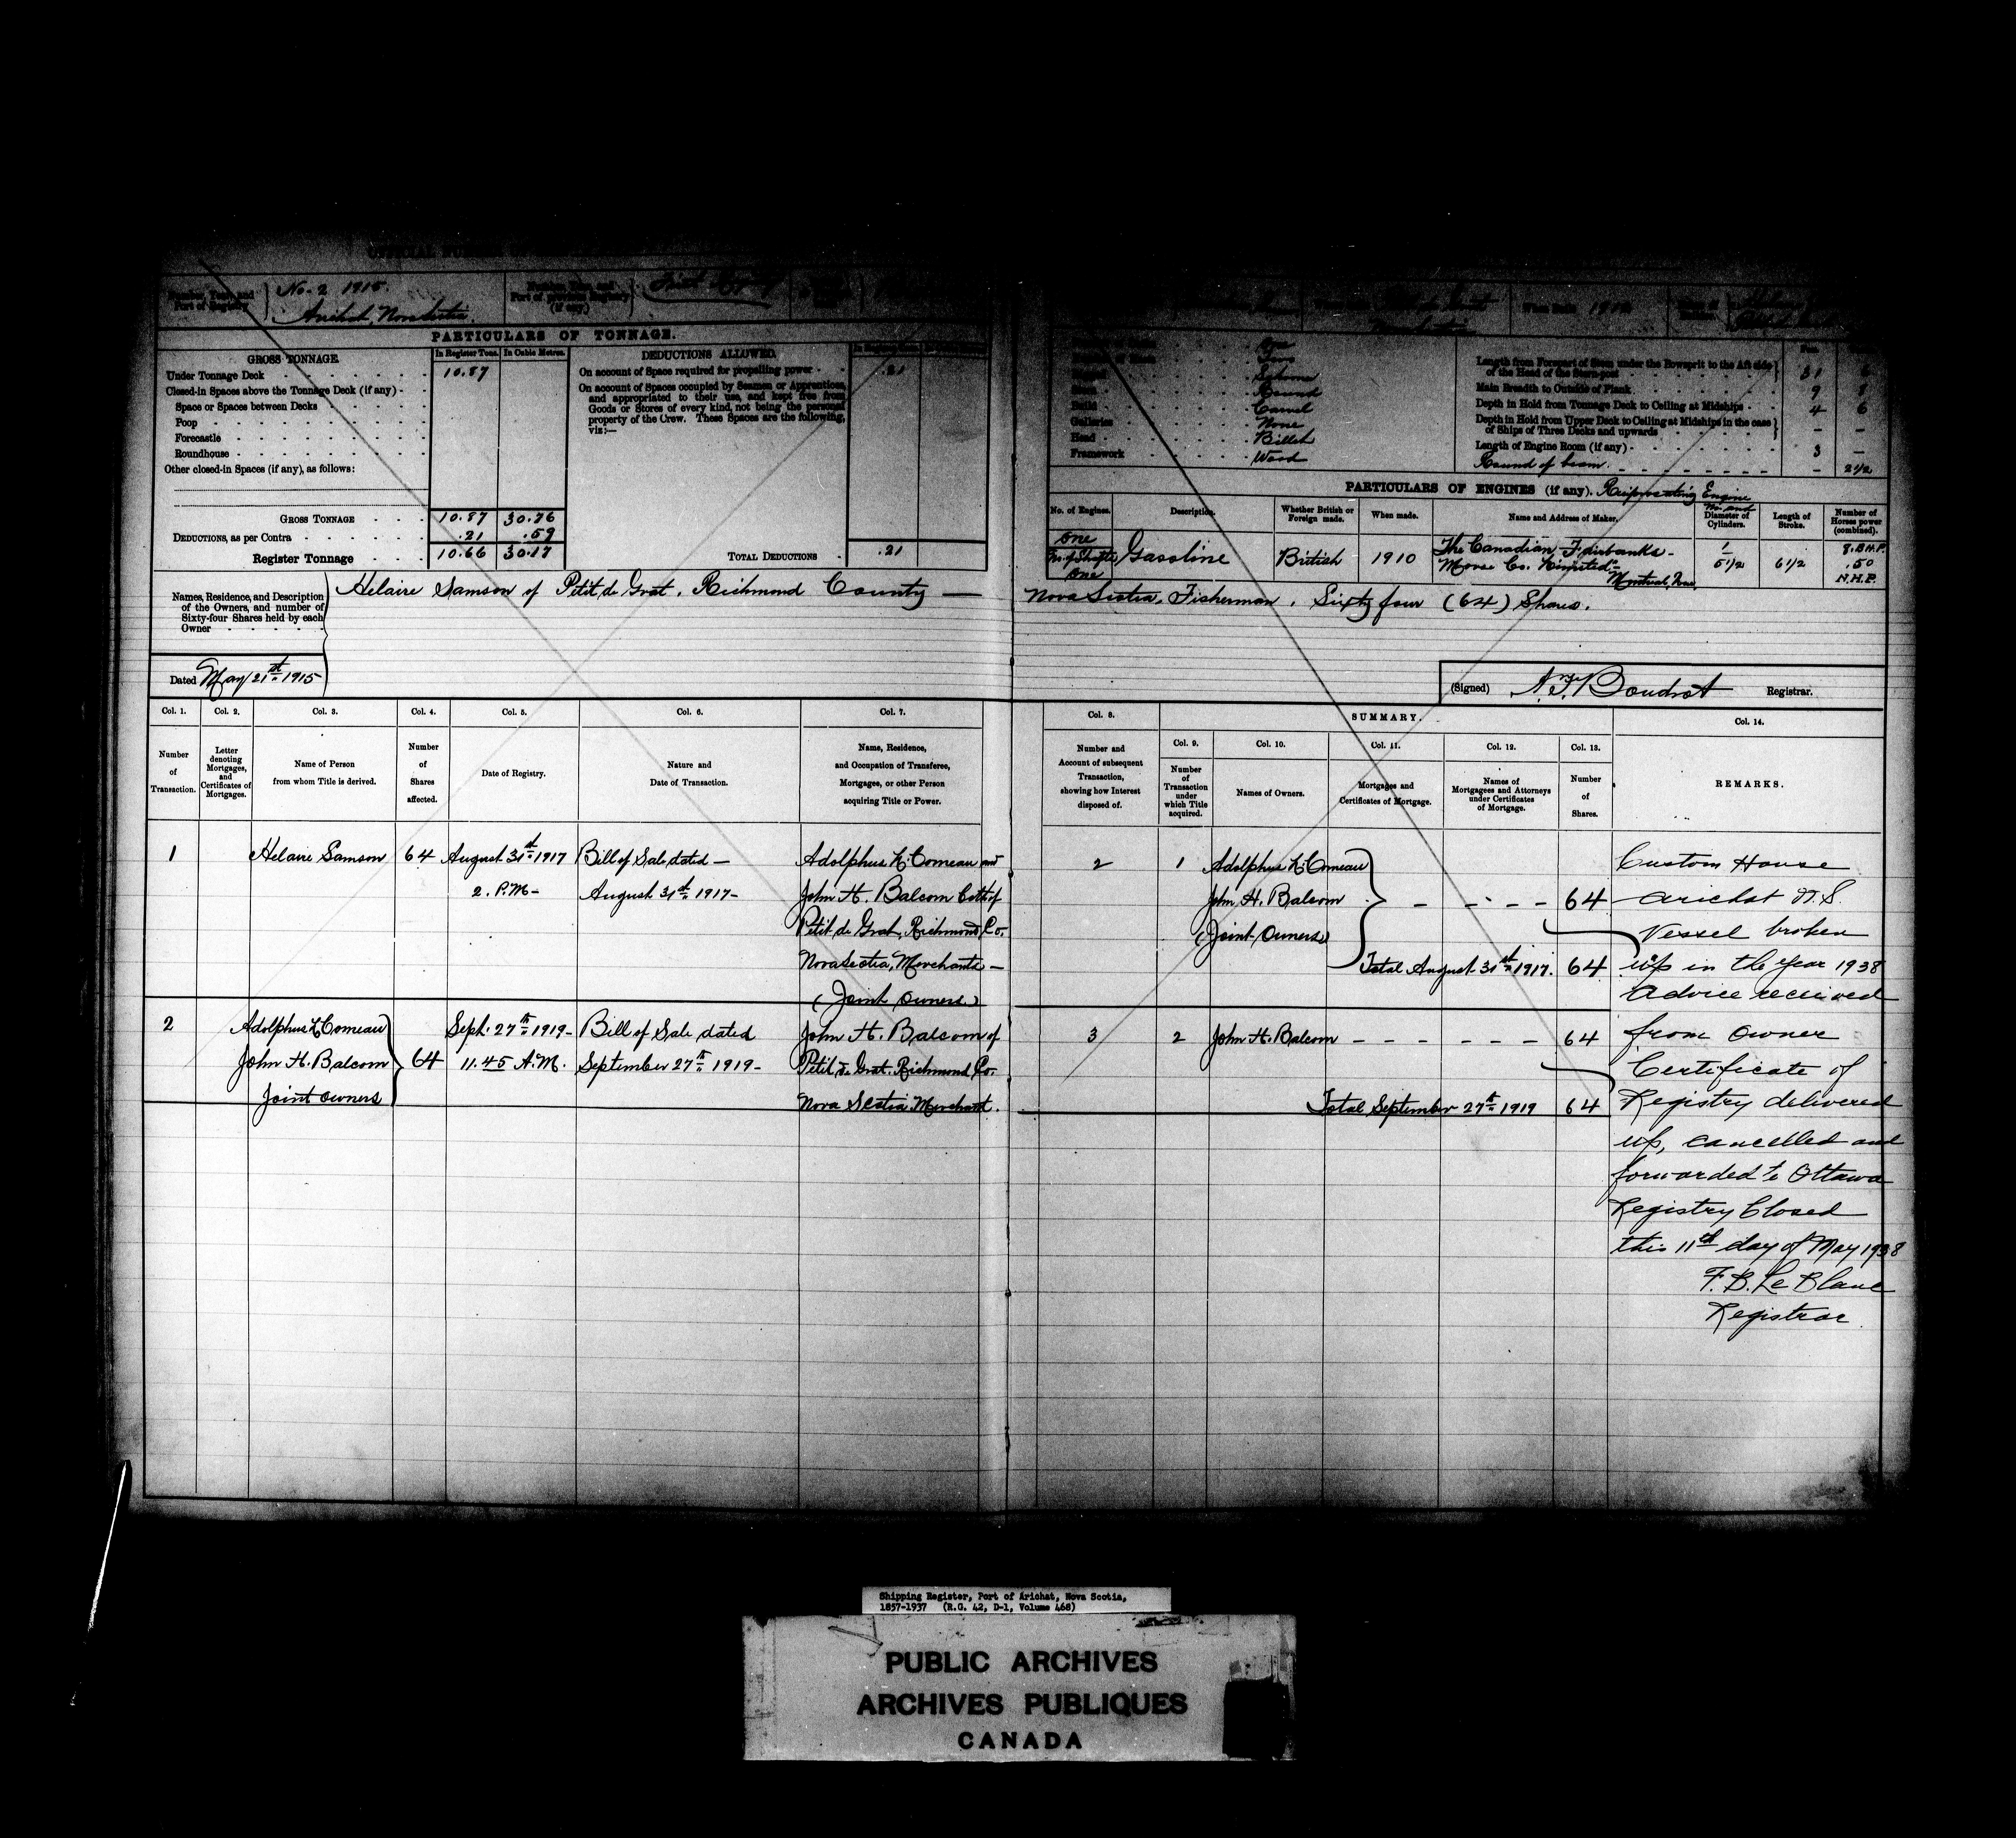 No. 2 1915.
Port of Registry
Arichat, Nova Scotia
PARTICULARS OF TONNAGE.
GROSS TONNAGE.
In Register Tons.
In Cubic Metres.
DEDUCTIONS ALLOWED.
Under Tonnage Deck
10.87
On account of Space required for propelling power
.21
Closed-in Spaces above the Tonnage Deck (if any)
Space or Spaces between Decks
Poop
Forecastle
Roundhouse
Other closed-in Spaces (if any), as follows:
On account of Spaces occupied by Seamen or Apprentices,
and appropriated to their use, and kept free from
Goods or Stores of every kind, not being the personal
property of the Crew. These Spaces are the following,
viz:—
GROSS TONNAGE
10.87 30.76
DEDUCTIONS, as per Contra
.21 .59
Register Tonnage
10.66 30.17
TOTAL DEDUCTIONS
.21
One
Two
Round
Carvel
Galleries None
Head Billet
Framework Wood
Length from Forepart of Stem under the Bowsprit to the Aft side
of the Head of the Stern-post
31 6
Main Breadth to Outside of Plank
9 8
Depth in Hold from Tonnage Deck to Ceiling at Midships
4 6
Depth in Hold from Upper Deck to Ceiling at Midships in the case
of Ships of Three Decks and upwards
– –
Length of Engine Room (if any)
3 –
Round of beam
– 2 1/2
PARTICULARS OF ENGINES (if any). Reciprocating Engine
No. of Engines.
Description.
Whether British or
Foreign made.
When made.
Name and Address of Maker.
No. and
Diameter of
Cylinders.
Length of
Stroke.
Number of
Horses power
(combined).
One
No. of Shafts
One
Gasoline
British
1910
The Canadian Fairbanks-
Morse Co. Limited
Montreal, Que.
1
5 1/2
6 1/2
.50
N.H.P.
Names, Residence, and Description
of the Owners, and number of
Sixty-four Shares held by each
Owner
Helaire Samson of Petit de Grat, Richmond County —
Nova Scotia, Fisherman, Sixty four (64) Shares.
Dated May 21st 1915
(Signed) Boudrot Registrar.
Col. 1. Col. 2. Col. 3. Col. 4. Col. 5. Col. 6. Col. 7.
Number
of
Transaction.
Letter
denoting
Mortgages,
and
Certificates of
Mortgages.
Name of Person
from whom Title is derived.
Number
of
Shares
affected.
Date of Registry.
Nature and
Date of Transaction.
Name, Residence,
and Occupation of Transferee,
Mortgages, or other Person
acquiring Title or Power.
Col. 8.
Number and
Account of subsequent
Transaction,
showing how Interest
disposed of.
SUMMARY.
Col. 9. Col. 10. Col. 11. Col. 12. Col. 13.
Number
of
Transaction
under
which Title
acquired.
Names of Owners.
Mortgages and
Certificates of Mortgage.
Names of
Mortgagees and Attorneys
under Certificates
of Mortgage.
Number
of
Shares.
Col. 14.
REMARKS.
1
Helaire Samson
64
August 31st 1917
2. P.M—
Bill of Sale dated —
August 31st 1917—
Adolphus K. Comeau and
John H. Balcom both of
Petit de Grat, Richmond Co.
Nova Scotia, Merchants —
(Joint Owners)
2
1
Adolphus K. Comeau
John H. Balcom
(Joint Owners)
64
Total August 31st 1917. 64
2
Adolphus K Comeau
John H. Balcom
Joint Owners
64
Sept. 27th 1919—
11.45 A.M.
Bill of Sale dated
September 27th 1919—
John H. Balcom of
Petit de Grat, Richmond Co.
Nova Scotia Merchant.
3
2
John H. Balcom — — — — — —
64
Total September 27th 1919 64
Custom House
Arichat N.S.
Vessel broken
up in the year 1938
Advice received
from owner
Certificate of
Registry delivered
up, cancelled and
forwarded to Ottawa
Registry Closed
this 11th day of May 1938
F. B. Le Blanc
Registrar
Shipping Register, Port of Arichat, Nova Scotia,
1857-1937 (R.G. 42, D-1, Volume 468)
PUBLIC ARCHIVES
ARCHIVES PUBLIQUES
CANADA